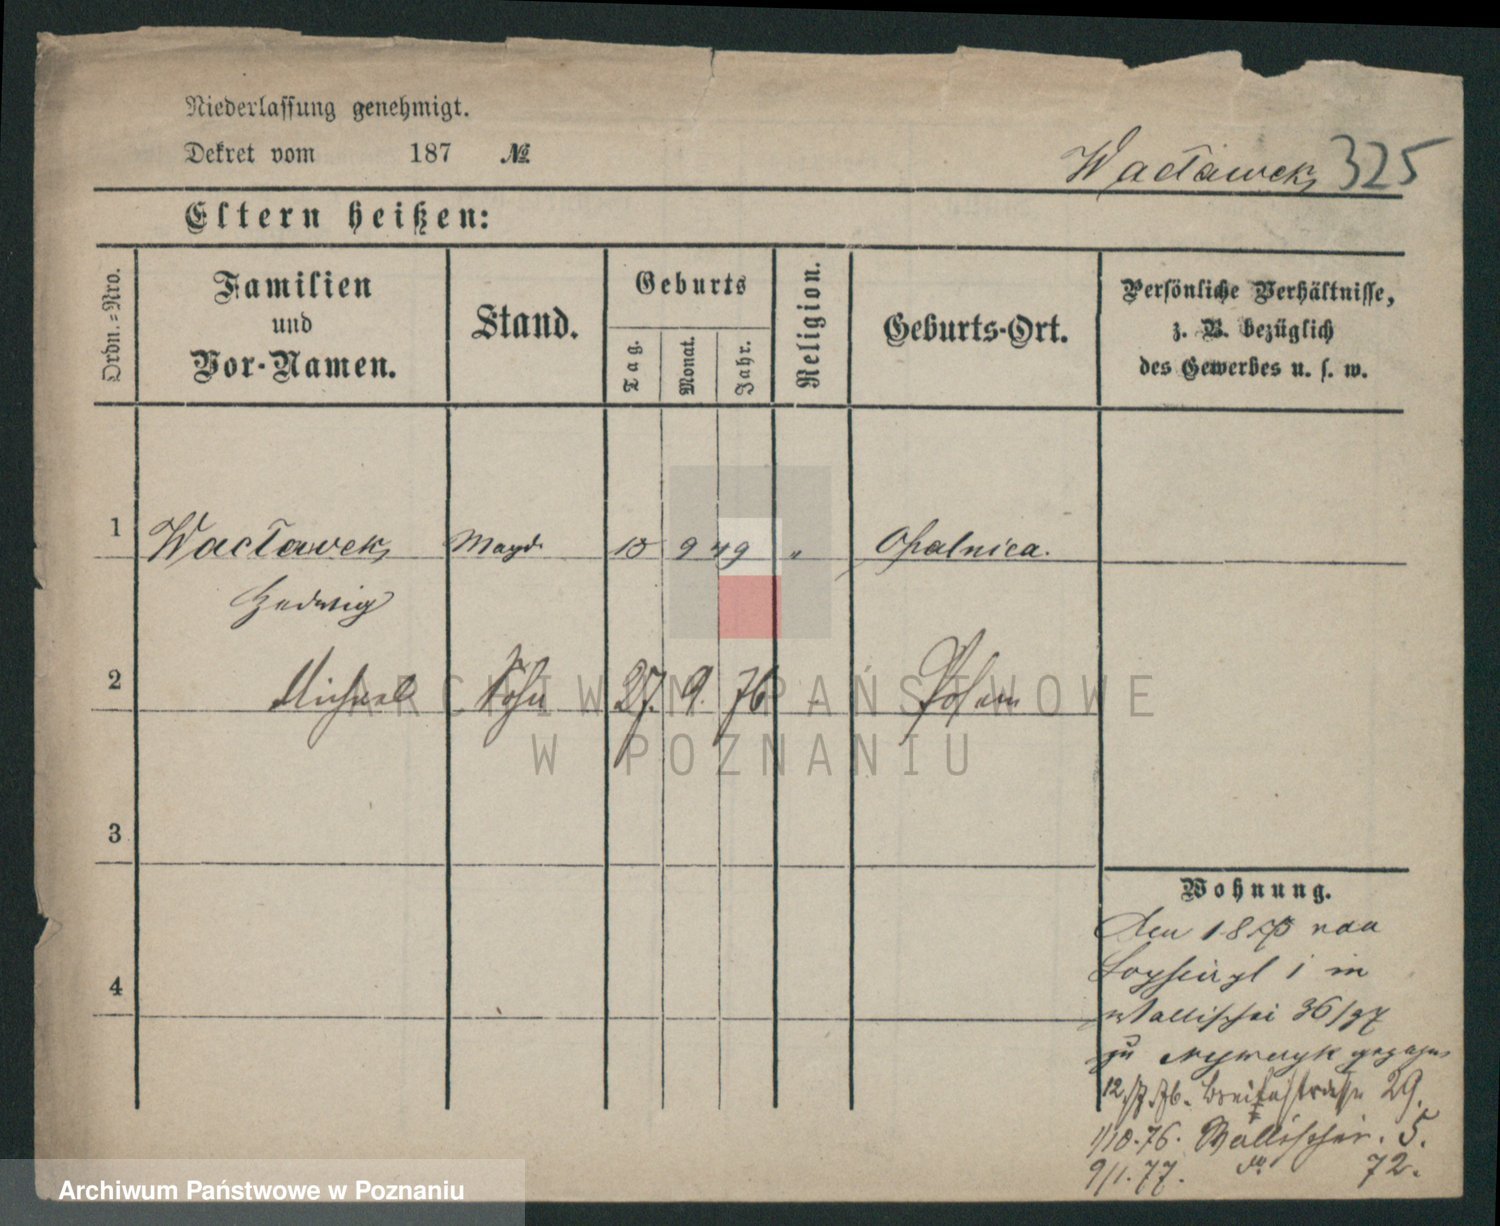 Niederlassung genehmigt.
Dekret vom 187 №
Wacławek 325
Eltern heißen:
Ordn.-Nro.
Familien und Vor-Namen.
Stand.
Geburts
Tag.
Monat.
Jahr.
Religion.
Geburts-Ort.
Persönliche Verhältnisse,
z. B. bezüglich
des Gewerbes u. s. w.
1 Wacławek Magd 10 9 49 " Opalnica.
Hedwig
2 Michael Sohn 27. 9. 76 Posen
3
4
Wohnung.
Den
in
Wallischei 36/37
zu
12/7.76. Breitestrasse 29.
1/10.76. Wallischei. 5.
9/1.77. do 72.
ARCHIWUM PAŃSTWOWE
W POZNANIU
Archiwum Państwowe w Poznaniu